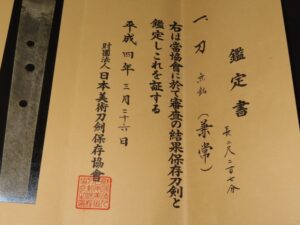 鑑定書
一、刀 無銘(兼常)
長二尺二寸七分
右は當協會に於て審査の結果保存刀剣と
鑑定しこれを証する
平成四年三月二十六日
財團法人日本美術刀剣保存協會